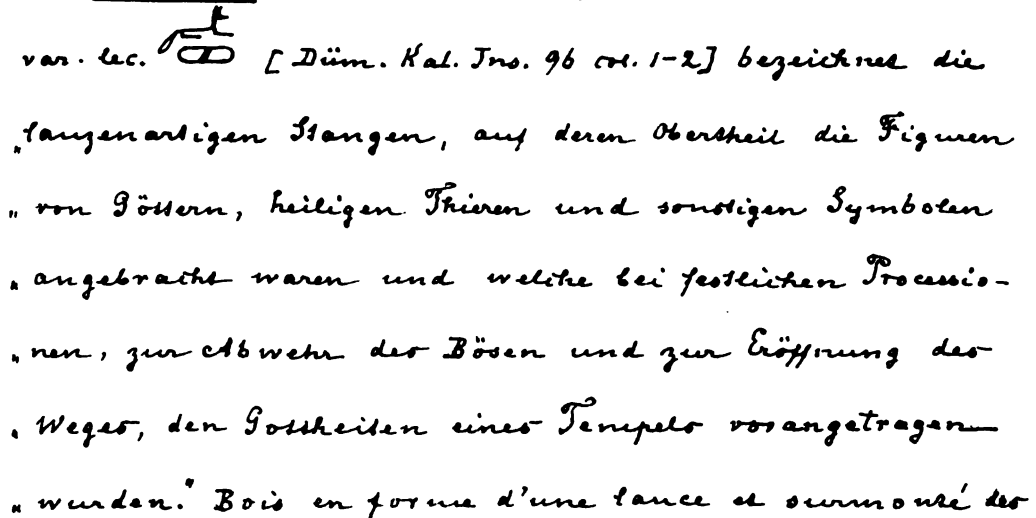 var. lec. [Düm. Kal. Ins. 96 col. 1-2] bezeichnet die
„lanzenartigen Stangen, auf deren Obertheil die Figuren
„von Göttern, heiligen Thieren und sonstigen Symbolen
„angebracht waren und welche bei festlichen Processio-
„nen, zur Abwehr des Bösen und zur Eröffnung des
„Weges, den Gottheiten eines Tempels vorangetragen
„wurden." Bois en forme d'une lance et surmonté des